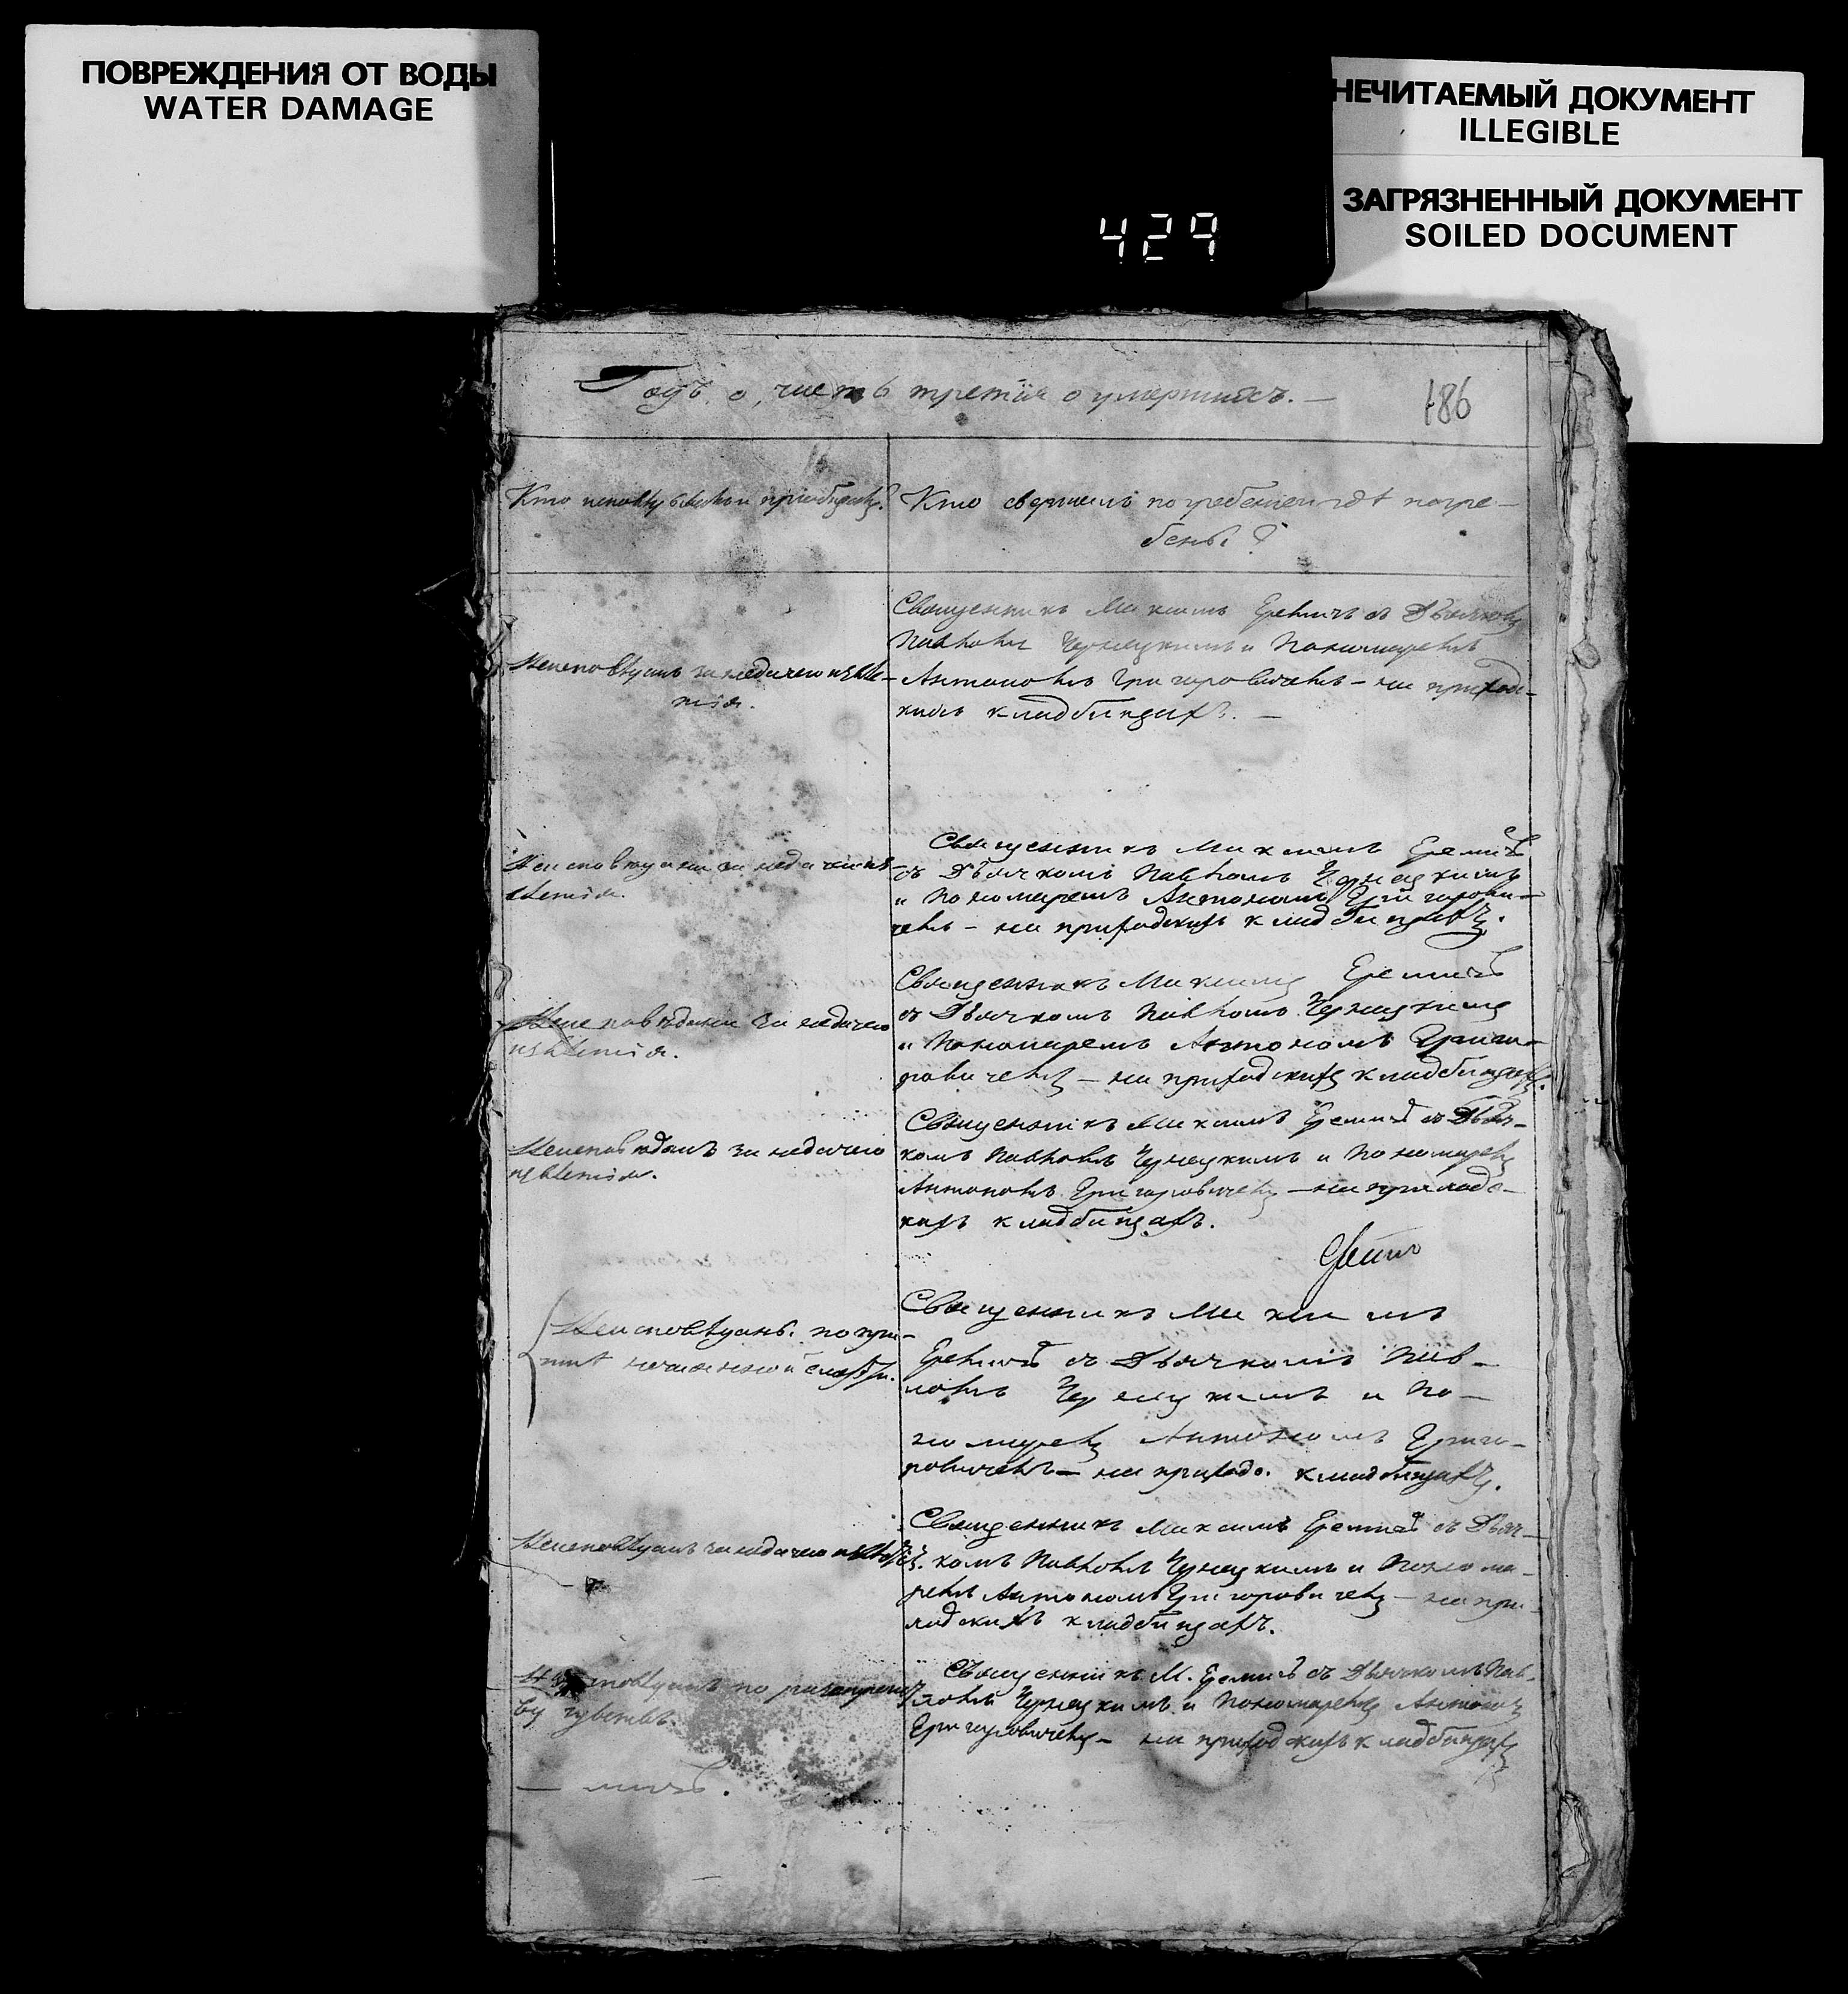 ПОВРЕЖДЕНИЯ ОТ ВОДЫ
WATER DAMAGE
НЕЧИТАЕМЫЙ ДОКУМЕНТ
ILLEGIBLE
ЗАГРЯЗНЕННЫЙ ДОКУМЕНТ
SOILED DOCUMENT
429
Годъ, о, часть третія о умершихъ. —
186
Кто исповѣдывалъ и пріобщалъ?
Кто свершилъ погребеніе и гдѣ погре-
бены?
Неисповѣданъ за недачею извѣ-
тія.
Священникъ Максимъ Еремичъ съ Дьячкомъ
Павломъ Чернецкимъ и Пономаремъ
Антономъ Григоровичемъ – на приход-
кихъ кладбищахъ. —
Неисповѣдана за недачею из-
вѣтія.
Священникъ Максимъ Еремичъ
съ Дьячкомъ Павломъ Чернецкимъ
и Пономаремъ Антономъ Григорови-
чемъ – на приходскихъ кладбищахъ.
Неисповѣдана за недачею
извѣтія.
Священникъ Максимъ Еремичъ
съ Дьячкомъ Павломъ Чернецкимъ
и Пономаремъ Антономъ Григо-
ровичемъ – на приходскихъ кладбищахъ.
Неисповѣданъ за недачею
извѣтія.
Священникъ Максимъ Еремичъ съ Дьяч-
комъ Павломъ Чернецкимъ и Пономаремъ
Антономъ Григоровичемъ – на приходс-
кихъ кладбищахъ.
Неисповѣданъ по при-
чинѣ нечаянной смерти.
Священникъ Максимъ
Еремичъ съ Дьячкомъ Пав-
ломъ Чернецкимъ и По-
номаремъ Антономъ Григо-
ровичемъ – на приходс. кладбищахъ.
Неисповѣданъ за недачею
Священникъ Максимъ Еремичъ съ Дьяч-
комъ Павломъ Чернецкимъ и Понома-
ремъ Антономъ Григоровичемъ – на при-
ходскихъ кладбищахъ.
по
чувствъ.
Священникъ М. Еремичъ съ Дьячкомъ Пав-
ломъ Чернецкимъ и Пономаремъ Антономъ
Григоровичемъ – на приходскихъ кладбищахъ